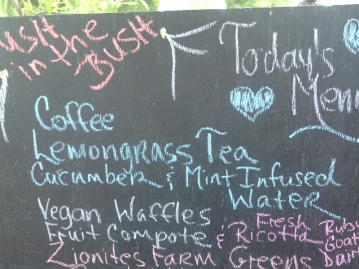 ush
in the
Bush
Today's
Menu
Coffee
Lemongrass Tea
Cucumber & Mint Infused
Water
Vegan Waffles
Fruit Compote & Fresh
Ricotta
Zionites Farm Greens
Ruby
Goat
Dair